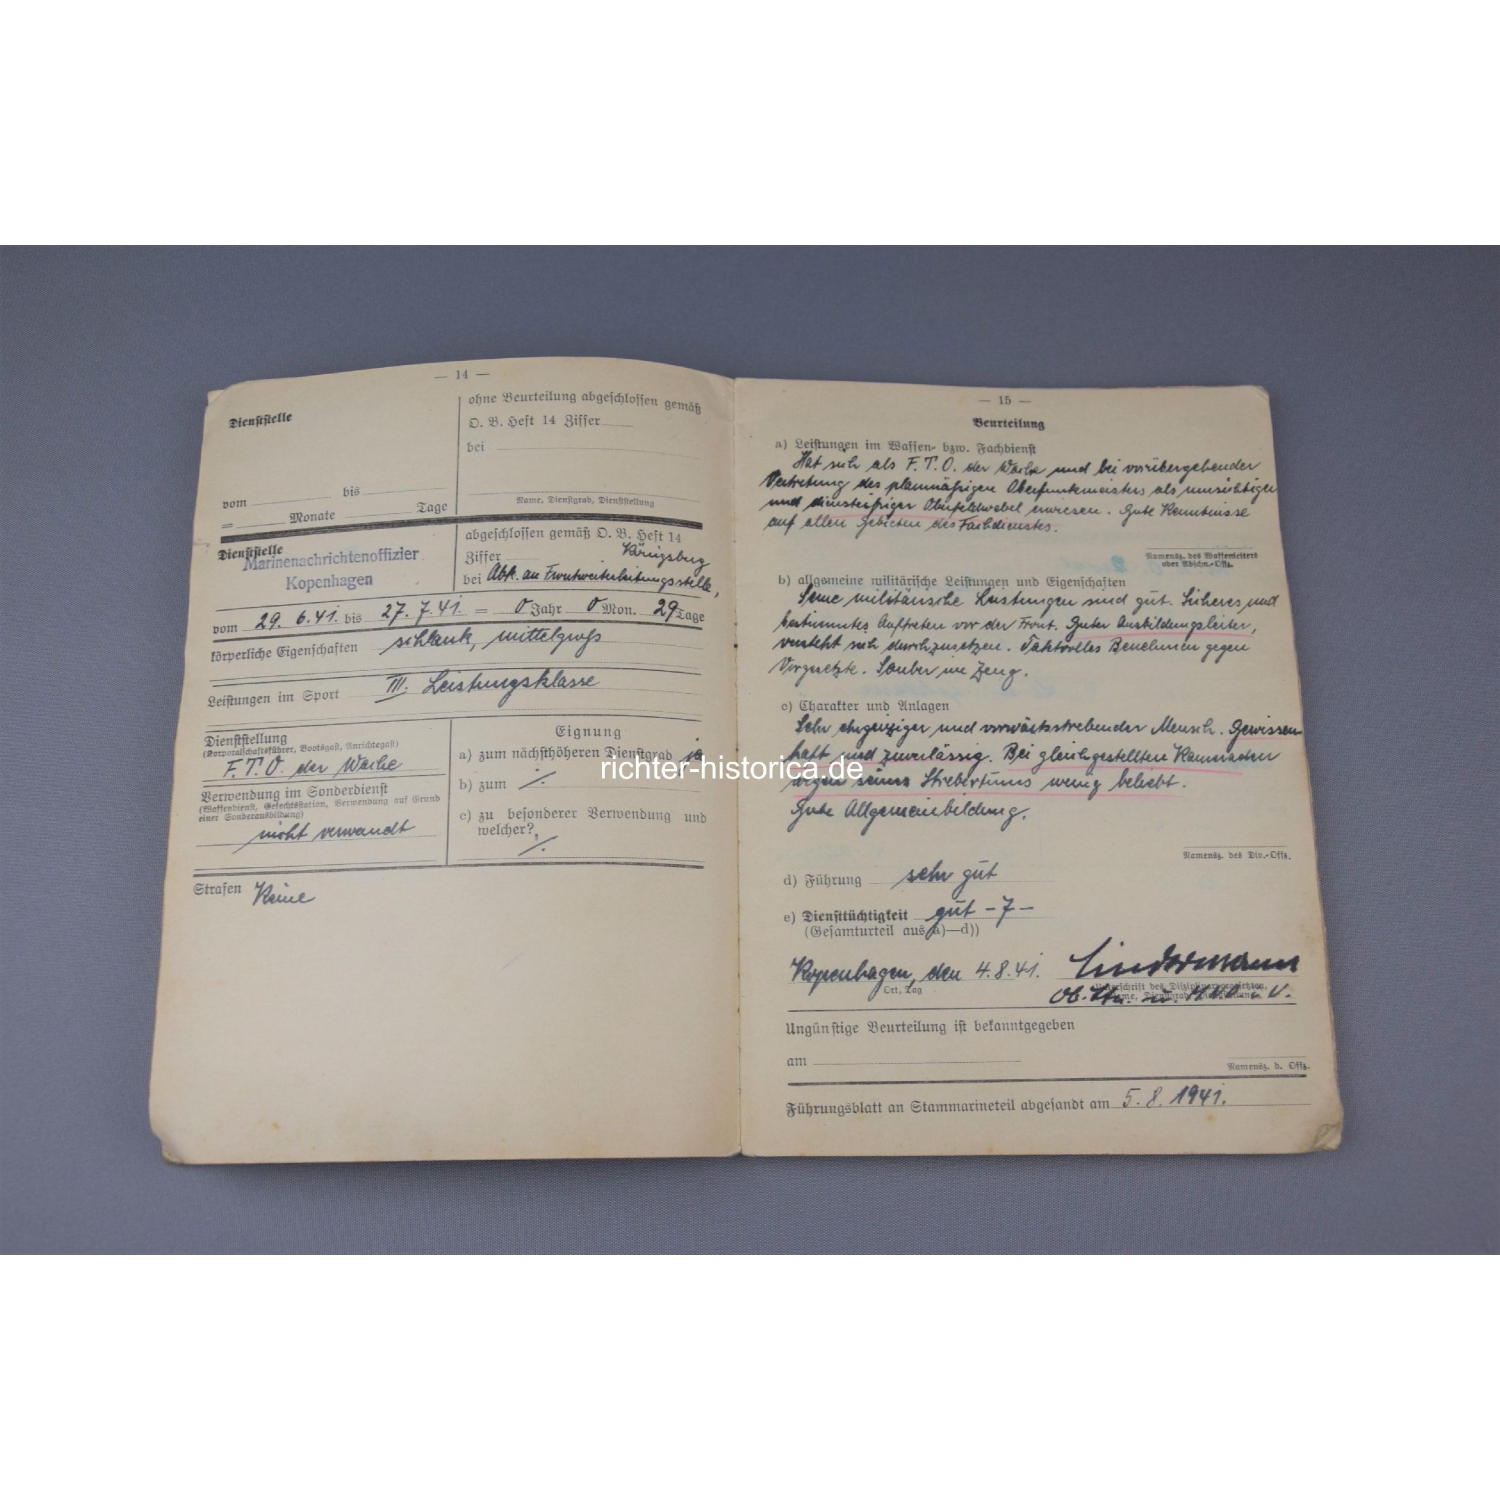 — 14 —
Dienststelle
ohne Beurteilung abgeschlossen gemäß
O. B. Heft 14 Ziffer
bei
vom bis
= Monate Tage
Name, Dienstgrad, Dienststellung
Dienststelle
Marinenachrichtenoffizier
Kopenhagen
abgeschlossen gemäß O. B. Heft 14
Ziffer
bei Abk. an Frontweiterleitungsstelle,
vom 29. 6. 41. bis 27. 7. 41. = 0 Jahr 0 Mon. 29 Tage
körperliche Eigenschaften schlank, mittelgroß
Leistungen im Sport III. Leistungsklasse
Dienststellung
(Korporalschaftsführer, Bootsgast, Anrichtegast)
F. T. O. der Wache
Verwendung im Sonderdienst
(Waffendienst, Gefechtsstation, Verwendung auf Grund
einer Sonderausbildung)
nicht verwandt
Eignung
a) zum nächsthöheren Dienstgrad ja
b) zum ./.
c) zu besonderer Verwendung und
welcher? ./.
Strafen Keine
— 15 —
Beurteilung
a) Leistungen im Waffen- bzw. Fachdienst
Hat sich als F. T. O. der Wache und bei vorübergehender
Vertretung des planmäßigen Oberfunkmeisters als umsichtiger
und diensteifriger Oberfeldwebel erwiesen. Gute Kenntnisse
auf allen Gebieten des Fachdienstes.
Namensz. des Waffenleiters
oder Abschn.-Offz.
b) allgemeine militärische Leistungen und Eigenschaften
Seine militärische Leistungen sind gut. Sicheres und
bestimmtes Auftreten vor der Front. Guter Ausbildungsleiter,
versteht sich durchzusetzen. Taktvolles Benehmen gegen
Vorgesetzte. Sauber im Zeug.
c) Charakter und Anlagen
Sehr ehrgeiziger und vorwärtsstrebender Mensch. Gewissen-
haft und zuverlässig. Bei gleichgestellten Kameraden
wegen seines Strebertums wenig beliebt.
Gute Allgemeinbildung.
Namensz. des Div.-Offz.
d) Führung sehr gut
e) Diensttüchtigkeit gut – 7 –
(Gesamturteil aus a)—d))
Kopenhagen, den 4. 8. 41. Lindermann
Ort, Tag
Unterschrift des Disziplinarvorgesetzten,
Name, Dienstgrad, Dienststellung
Ungünstige Beurteilung ist bekanntgegeben
am
Namensz. d. Offz.
Führungsblatt an Stammarineteil abgesandt am 5. 8. 1941.
richter-historica.de